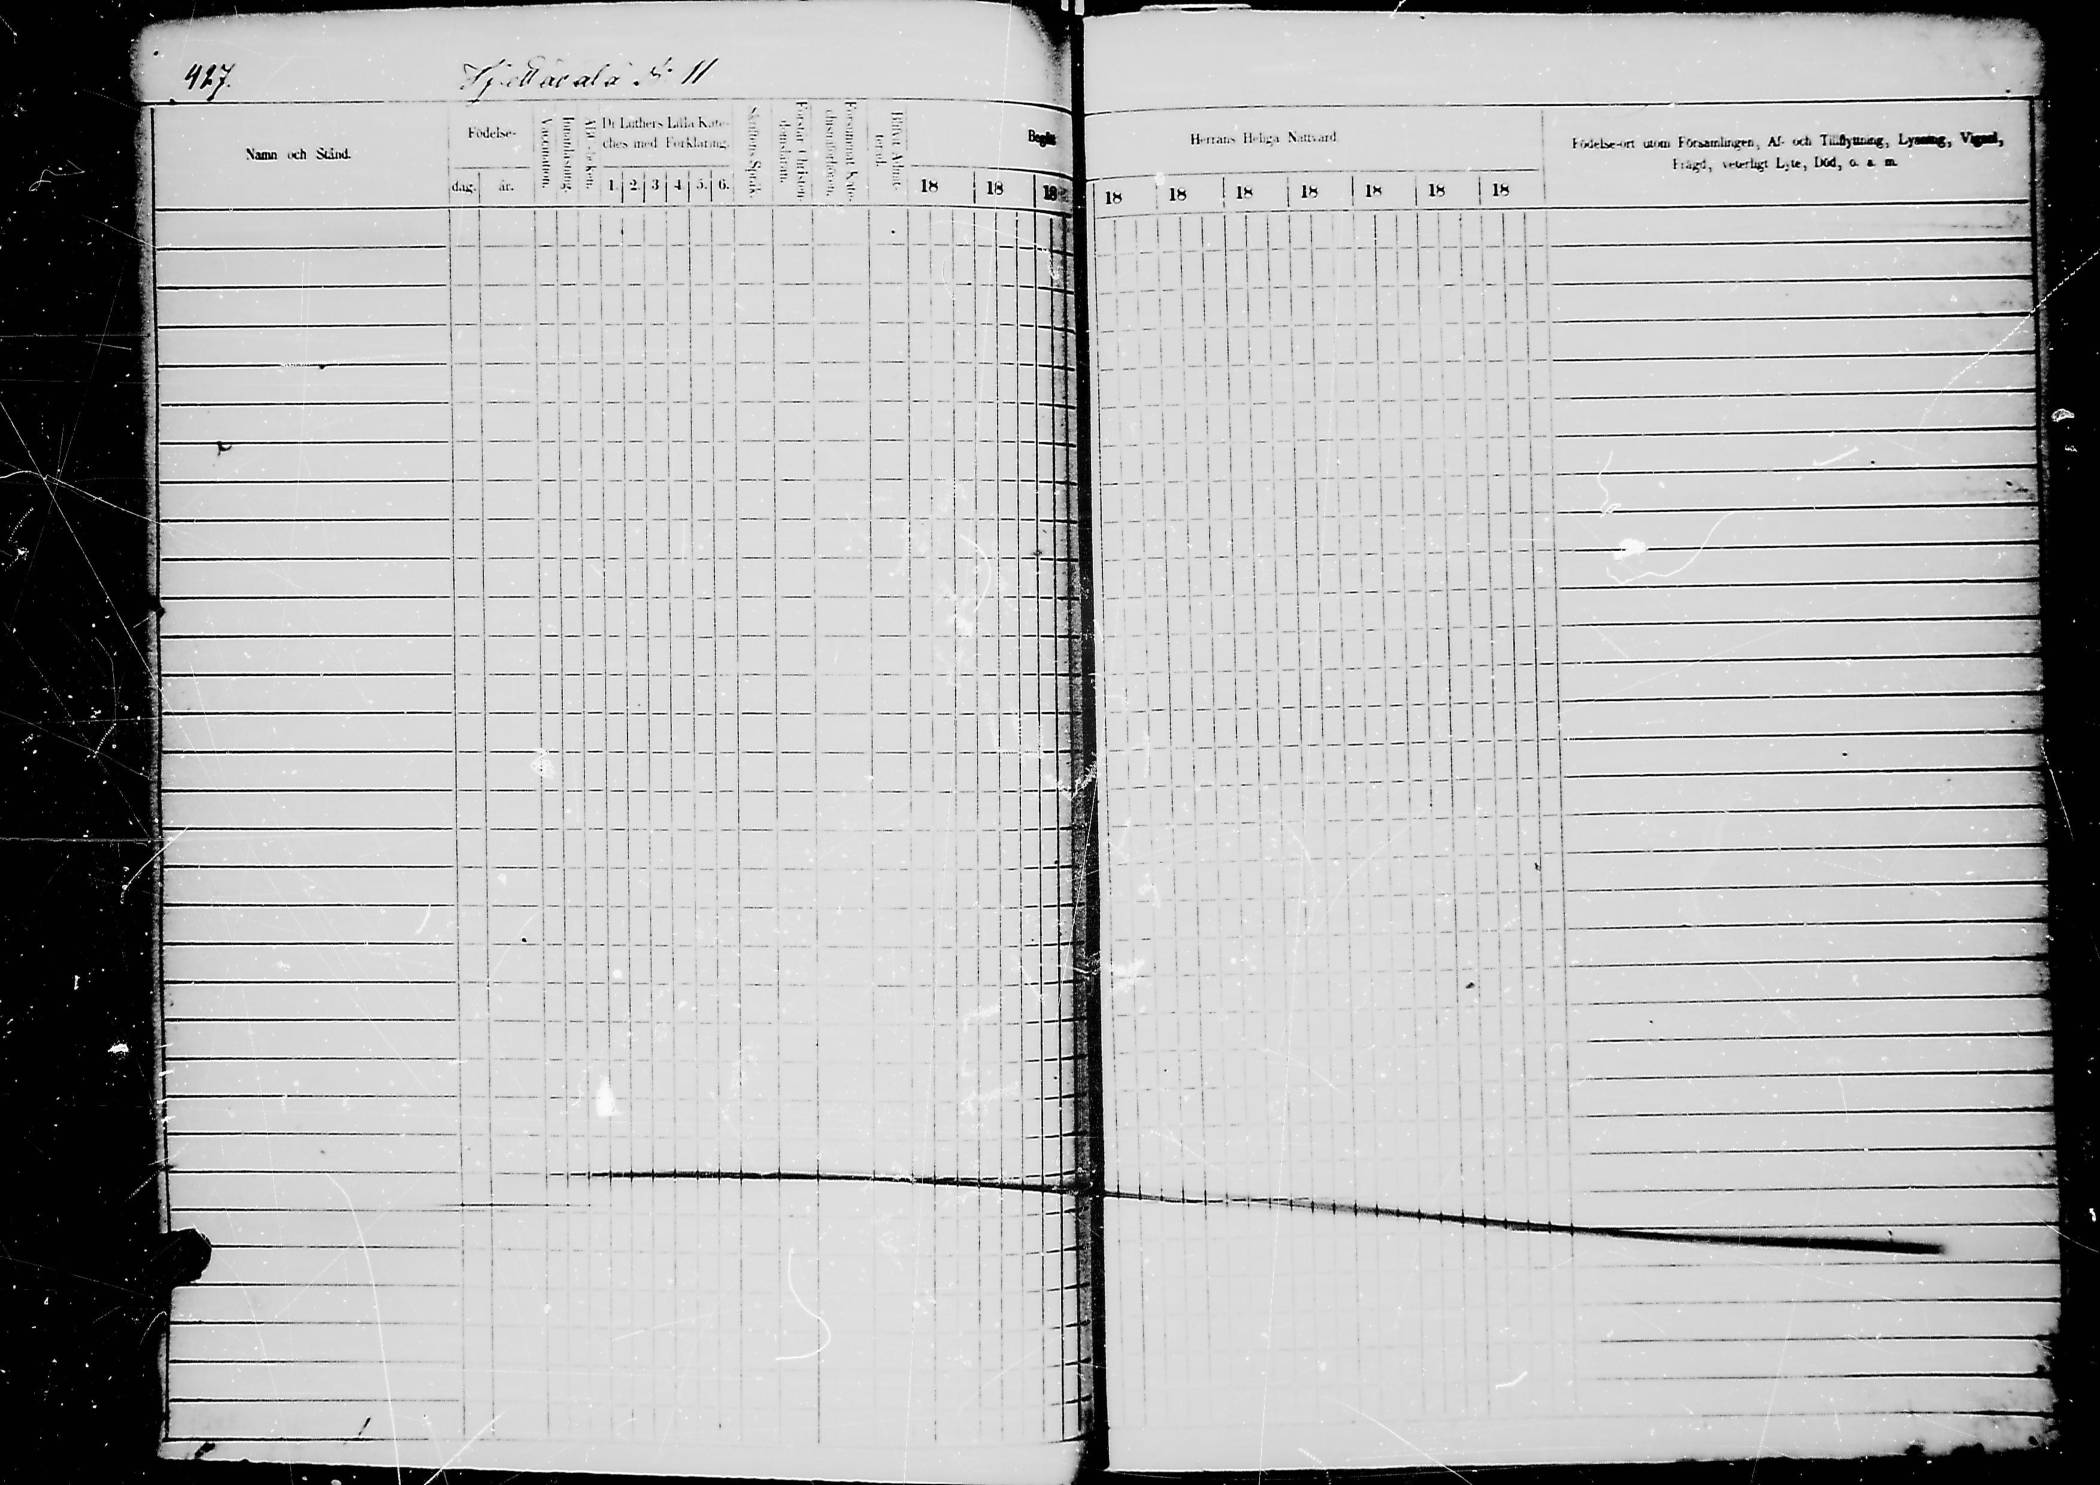 427.
№ 11
Namn och Stånd.
Födelse-
dag. år.
Vaccination.
Innanläsning.
Abc-boken.
Dr Luthers Lilla Kate-
ches med Förklaring.
1. 2. 3 4 5. 6.
Skriftens Språk.
Förstår Christen-
domsläran.
Försummat Kate-
Blifvit Admit-
terad.
Begått
18 18 18
Herrans Heliga Nattvard
18 18 18 18 18 18 18
Födelse-ort utom Församlingen, Af- och Tillflyttning, Lysning, Vigsel,
Frägd, veterligt Lyte, Död, o. s. m.